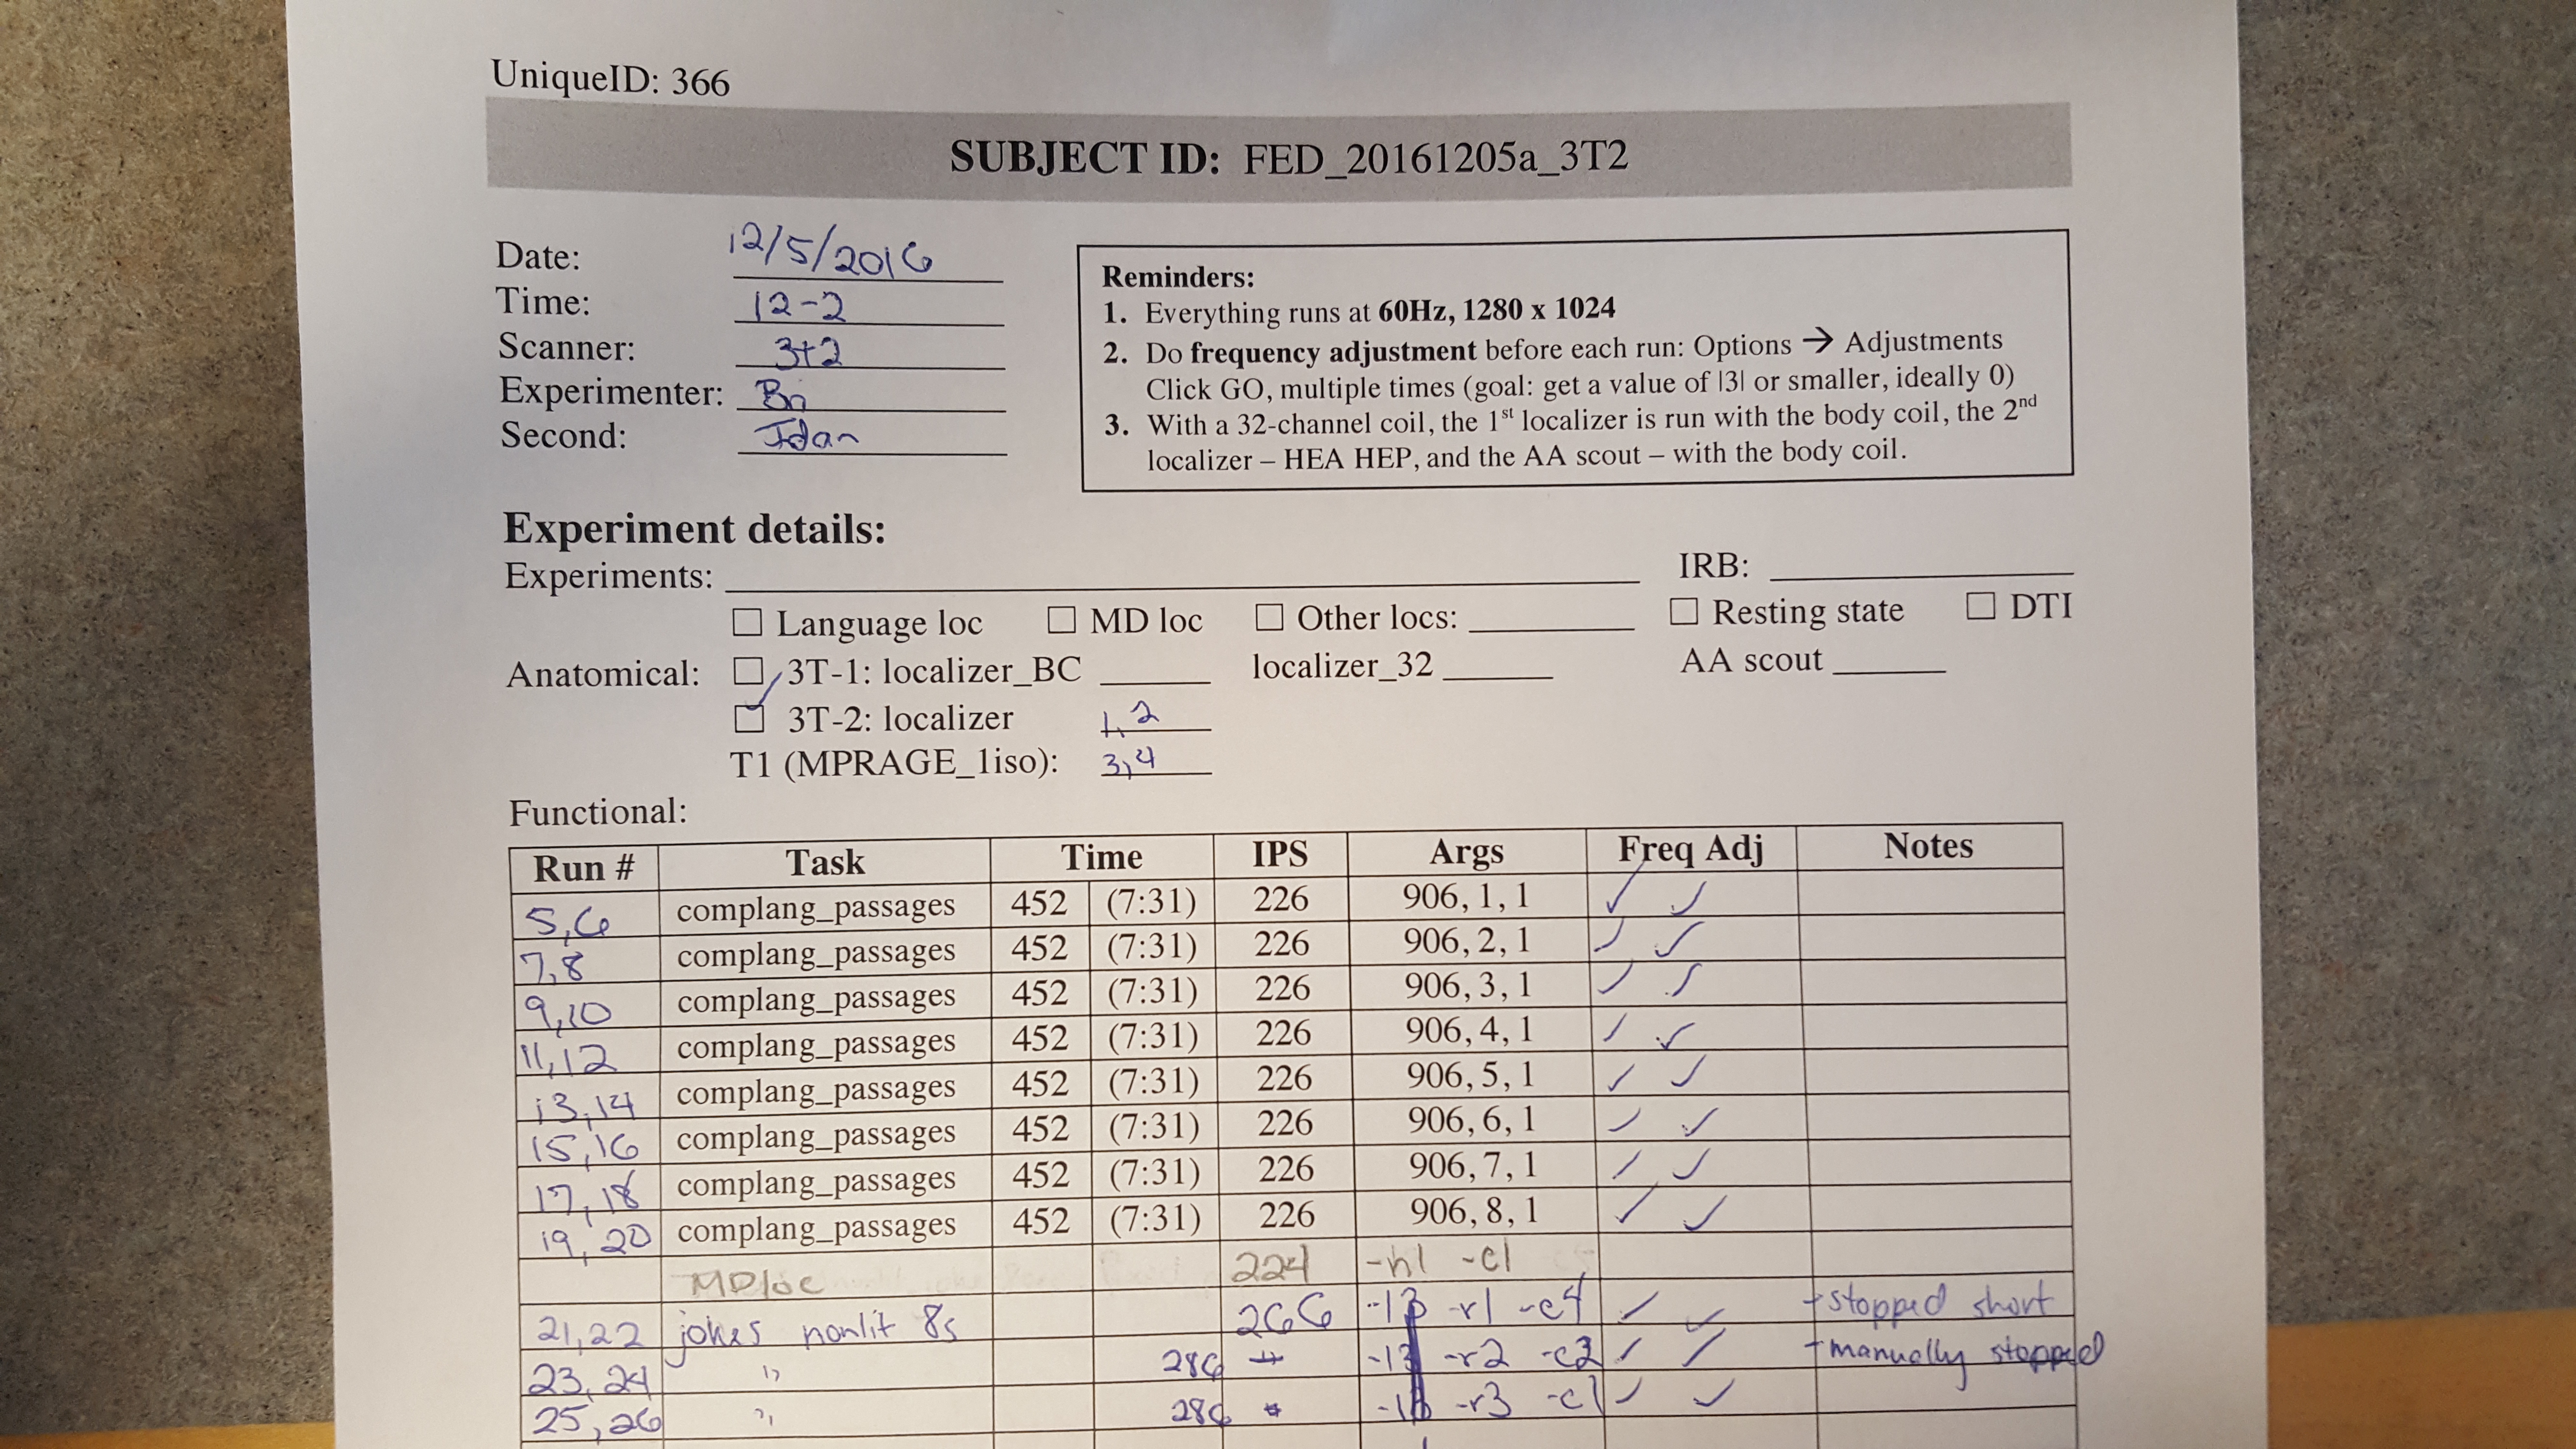 UniqueID: 366
SUBJECT ID: FED_20161205a_3T2
Date: 12/5/2016
Time: 12-2
Scanner: 3t2
Experimenter: Bri
Second: Idan
Reminders:
1. Everything runs at 60Hz, 1280 x 1024
2. Do frequency adjustment before each run: Options → Adjustments
Click GO, multiple times (goal: get a value of |3| or smaller, ideally 0)
3. With a 32-channel coil, the 1st localizer is run with the body coil, the 2nd
localizer – HEA HEP, and the AA scout – with the body coil.
Experiment details:
Experiments: IRB:
Language loc MD loc Other locs: Resting state DTI
Anatomical: 3T-1: localizer_BC localizer_32 AA scout
3T-2: localizer 1,2
T1 (MPRAGE_1iso): 3,4
Functional:
Run # Task Time IPS Args Freq Adj Notes
5,6 complang_passages 452 (7:31) 226 906, 1, 1 ✓ ✓
7,8 complang_passages 452 (7:31) 226 906, 2, 1 ✓ ✓
9,10 complang_passages 452 (7:31) 226 906, 3, 1 ✓ ✓
11,12 complang_passages 452 (7:31) 226 906, 4, 1 ✓ ✓
13,14 complang_passages 452 (7:31) 226 906, 5, 1 ✓ ✓
15,16 complang_passages 452 (7:31) 226 906, 6, 1 ✓ ✓
17,18 complang_passages 452 (7:31) 226 906, 7, 1 ✓ ✓
19,20 complang_passages 452 (7:31) 226 906, 8, 1 ✓ ✓
MDloc 224 -n1 -c1
21,22 jokes nonlit 8s 266 -r1 -c4 ✓ ✓ stopped short
23,24 " 286 -r2 -c2 ✓ ✓ manually stopped
25,26 " 286 -r3 -c1 ✓ ✓